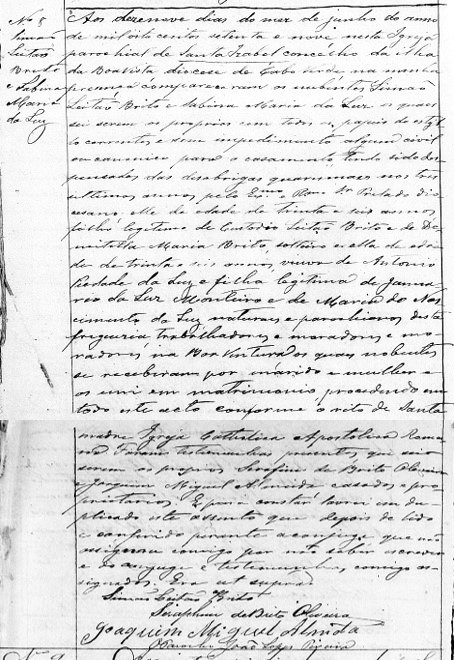 Nº 8
Simão
Leitão
Brito
e Sabina
Maria
da Luz
Aos dezenove dias do mez de junho do anno
de mil oitocentos setenta e nove nesta Igreja
parochial de Santa Izabel concelho da ilha
da Boavista diocese de Cabo Verde, na minha
presença compareceram os nubentes Simão
Leitão Brito e Sabina Maria da Luz os quaes
sei serem os proprios com todos os papeis do estyl
lo correntes e sem impedimento algum civil
ou canonico para o casamento tendo sido dis
pensados das desobrigas quaresmaes nos tres
ultimos annos pelo Exmo e Rmo Sr Prelado dio
cesano, elle de edade de trinta e seis annos
filho legitimo de Custodio Leitão Brito e de De
mitilla Maria Brito solteiro e ella de eda
de de trinta e seis annos, viuva de Antonio
Piedade da Luz e filha legitima de Janua
rio da Luz Monteiro e de Maria do Nas
cimento da Luz naturaes e parochianos desta
freguezia trabalhadores e moradores e mo
radores na Boa Ventura os quaes nubentes
se receberam por marido e mulher e
os uni em matrimonio procedendo em
todo este acto conforme o rito da Santa
madre Igreja Catholica Apostolica Roma
na. Foram testemunhas presentes, que sei
serem os proprios Serafim de Brito Oliveira
e Joaquim Miguel Almida casados e pro
prietarios. E para constar lavrei em du
plicado este assento que depois de lido
e conferido perante a conjuge, que não
assignou comigo por não saber escrever
e o conjuge e testemunhas, comigo as
signados. Era ut supra
Simão Leitão Brito
Seraphim de Brito Oliveira
Joaquim Miguel Almida
O Parocho João Lopes
Nº 9